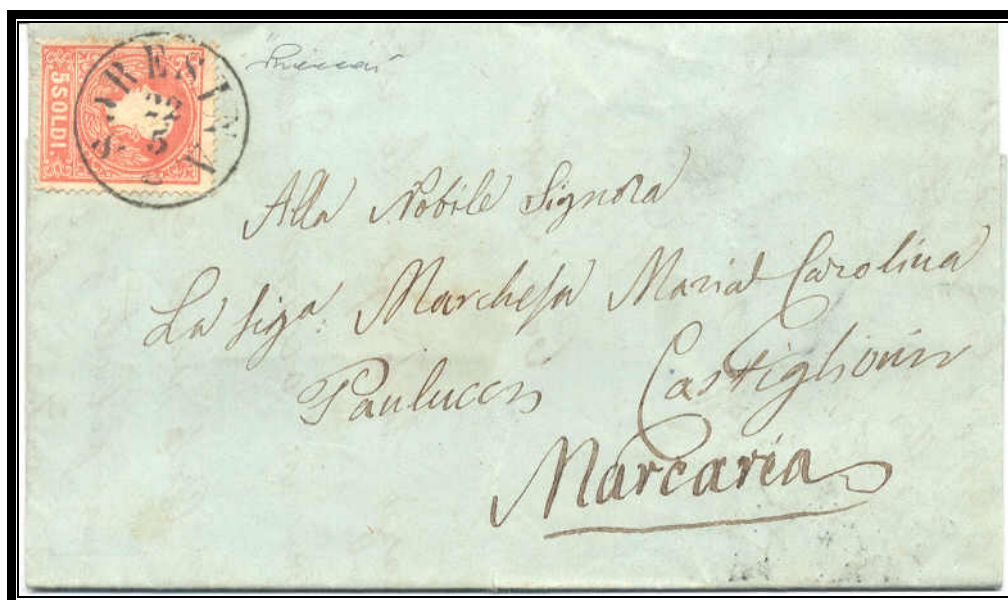 5 SOLDI.
SORESINA
22
5
Alla Nobile Signora
La Sig.ª Marchesa Maria Carolina
Paulucci Castiglioni
Marcaria